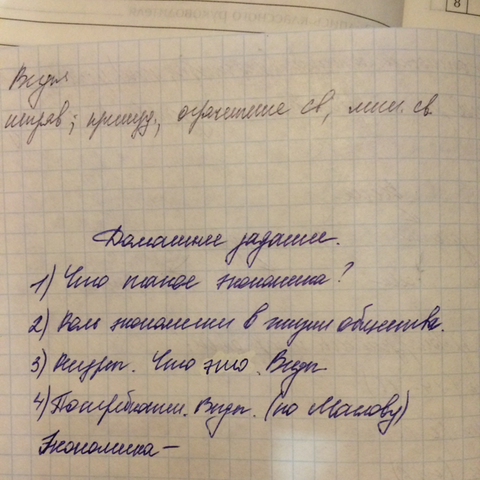 Виды
исправ; принуд., ограничение св, лиш. св.
Домашнее задание.
1) Что такое экономика?
2) Роль экономики в жизни общества.
3) Ресурсы. Что это. Виды
4) Потребности. Виды. (по Маслоу)
Экономика —
8